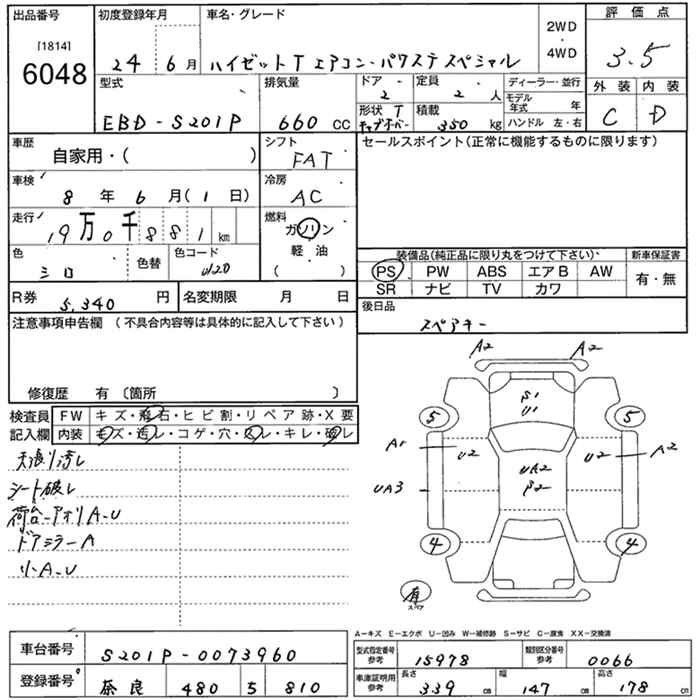 出品番号
[1814]
6048
初度登録年月
24年 6月
車名・グレード
ハイゼットT エアコン・パワステ スペシャル
2WD
・
4WD
評価点
3.5
型式
EBD-S201P
排気量
660 cc
ドア
2
定員
2人
ディーラー・並行
モデル年式 年
ハンドル 左・右
形状 T
積載
350 kg
外装 内装
C D
車歴
自家用・( )
シフト
FAT
セールスポイント(正常に機能するものに限ります)
車検
8年 6月(1日)
冷房
AC
走行
19万0千881km
燃料
ガソリン
軽油
( )
色
シロ
色替
色コード
W20
装備品(純正品に限り丸をつけて下さい)
新車保証書
PS PW ABS エアB AW
SR ナビ TV カワ
有・無
R券
5,340円
名変期限 月 日
後日品
スペアキー
注意事項申告欄 (不具合内容等は具体的に記入して下さい)
修復歴 有 〔箇所 〕
検査員
記入欄
FW キズ・飛石・ヒビ割・リペア跡・X要
内装 キズ・汚レ・コゲ・穴・スレ・キレ・破レ
天張リ汚レ
シート破レ
荷台-アオリA-U
ドアミラーA
小A-U
A2 A2
S1
U1
5 5
A1 U2 U2 A2
UA2
S2
UA3
4 4
有
スペア
A-キズ E-エクボ U-凹み W-補修跡 S-サビ C-腐食 XX-交換済
車台番号
S201P-0073960
型式指定番号
参考
15978
類別区分番号
参考
0066
登録番号
奈良 480 5 810
車庫証明用
参考
長さ 339cm
幅 147cm
高さ 178cm